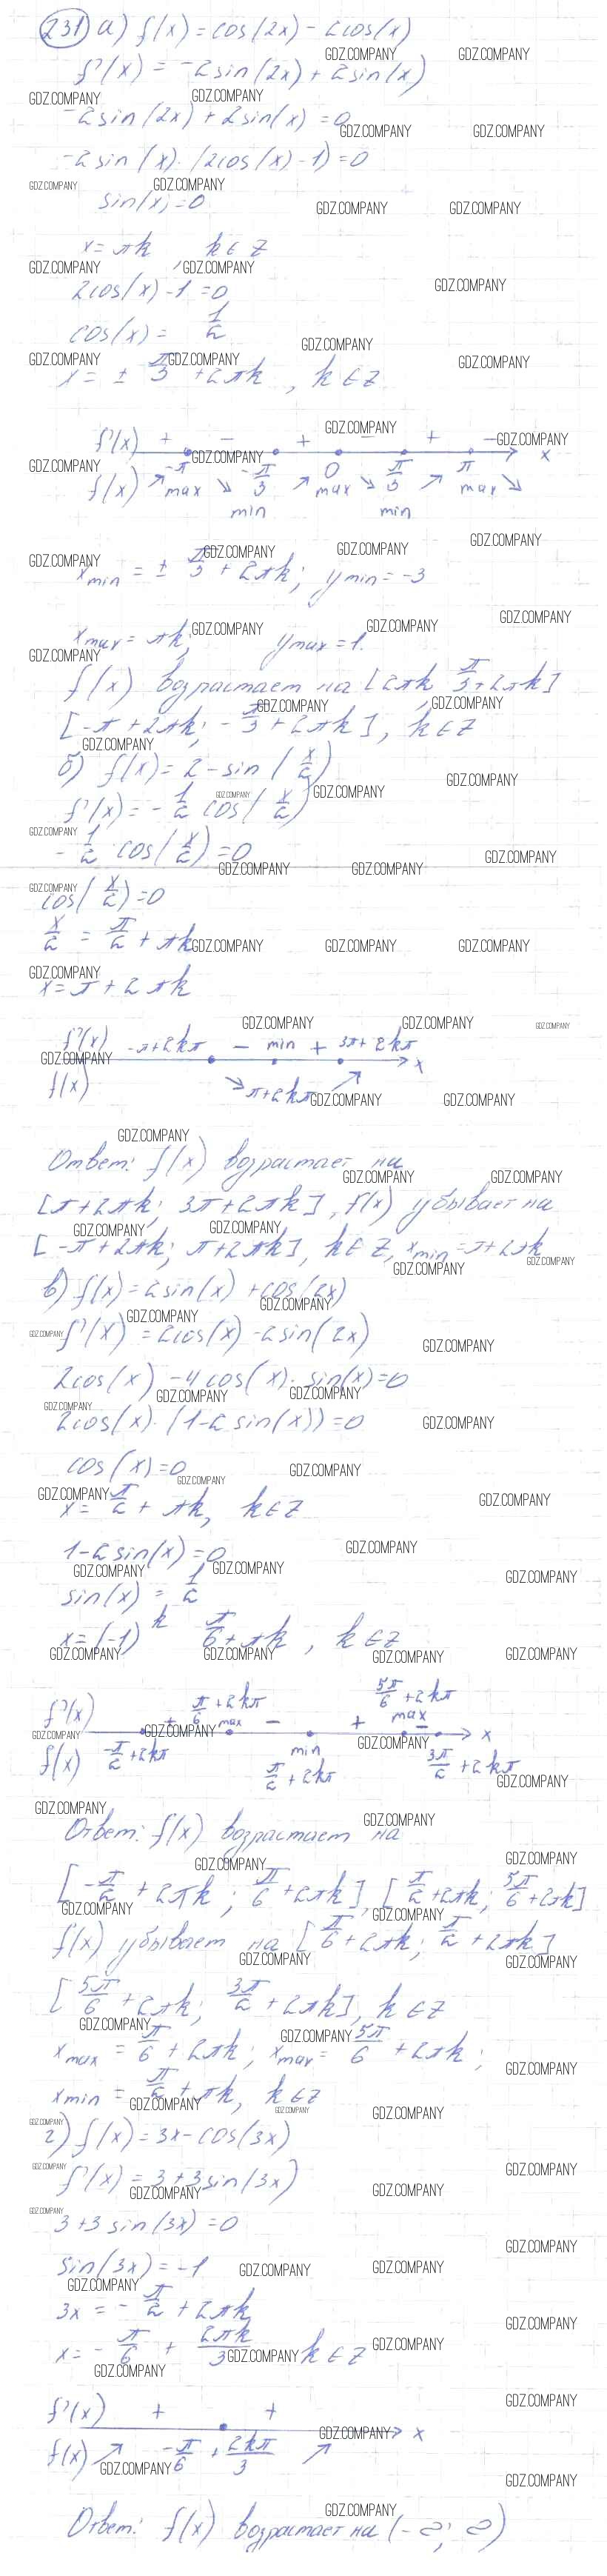 231) а) f(x) = cos(2x) - 2cos(x)
f'(x) = -2sin(2x) + 2sin(x)
-2sin(2x) + 2sin(x) = 0
-2sin(x)·(2cos(x)-1) = 0
sin(x) = 0
x = πk k∈Z
2cos(x) - 1 = 0
cos(x) = 1/2
x = ± π/3 + 2πk, k∈Z
f'(x) + - + - + - x
f(x) -π max -π/3 min 0 max π/3 min π max
x min = ± π/3 + 2πk; y min = -3
x max = πk; y max = 1.
f(x) возрастает на [2πk; π/3 + 2πk]
[-π + 2πk; -π/3 + 2πk], k∈Z
б) f(x) = 2 - sin(x/2)
f'(x) = -1/2 cos(x/2)
-1/2 cos(x/2) = 0
cos(x/2) = 0
x/2 = π/2 + πk
x = π + 2πk
f'(x) -π+2kπ - min + 3π+2kπ x
f(x) ↘ π+2kπ ↗
Ответ: f(x) возрастает на
[π+2πk; 3π+2πk], f(x) убывает на
[-π+2πk; π+2πk], k∈Z, x min = π+2πk
в) f(x) = 2sin(x) + cos(2x)
f'(x) = 2cos(x) - 2sin(2x)
2cos(x) - 4cos(x)·sin(x) = 0
2cos(x)·(1-2sin(x)) = 0
cos(x) = 0
x = π/2 + πk, k∈Z
1-2sin(x) = 0
sin(x) = 1/2
x = (-1)^k π/6 + πk, k∈Z
f'(x) + π/6+2kπ max - + 5π/6+2kπ max - x
f(x) -π/2+2kπ min π/2+2kπ 3π/2+2kπ
Ответ: f(x) возрастает на
[-π/2 + 2πk; π/6 + 2πk], [π/2+2πk; 5π/6+2πk]
f(x) убывает на [π/6+2πk; π/2+2πk]
[5π/6 + 2πk; 3π/2 + 2πk], k∈Z
x max = π/6 + 2πk; x max = 5π/6 + 2πk;
x min = π/2 + πk, k∈Z
г) f(x) = 3x - cos(3x)
f'(x) = 3+3sin(3x)
3+3sin(3x) = 0
sin(3x) = -1
3x = -π/2 + 2πk
x = -π/6 + 2πk/3 k∈Z
f'(x) + + x
f(x) ↗ -π/6 + 2kπ/3 ↗
Ответ: f(x) возрастает на (-∞; ∞)
GDZ.COMPANY